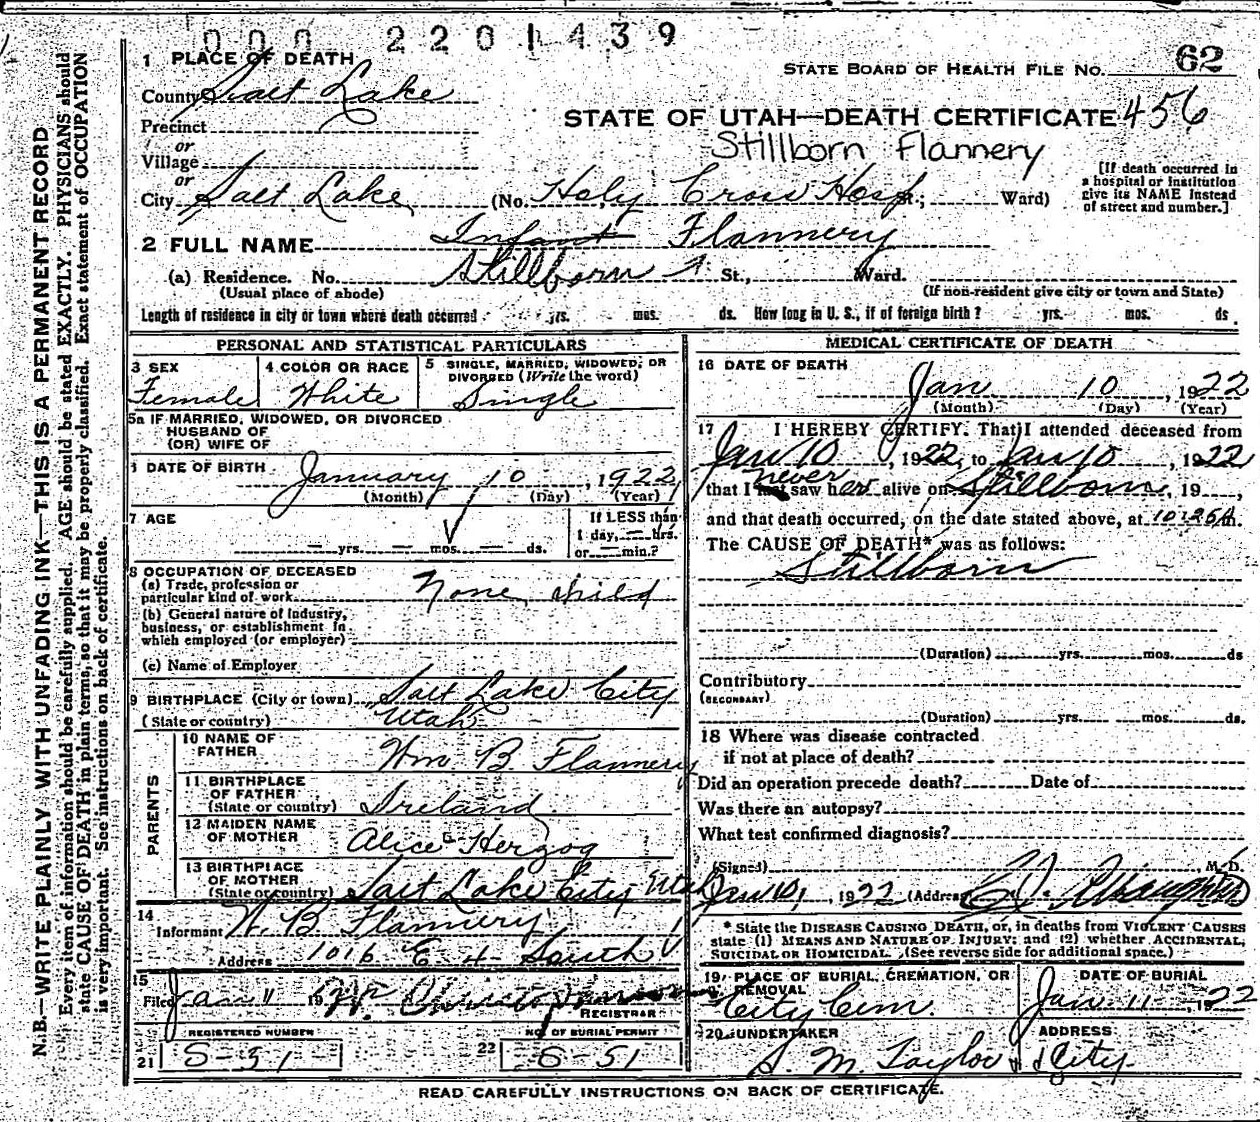 000 2201439
1 PLACE OF DEATH
STATE BOARD OF HEALTH FILE NO. 62
County Salt Lake
STATE OF UTAH—DEATH CERTIFICATE 456
Precinct
or
Stillborn Flannery
Village
or
City Salt Lake (No. Holy Cross Hosp St.; Ward)
[If death occurred in a hospital or institution give its NAME instead of street and number.]
2 FULL NAME Infant Flannery
Stillborn
(a) Residence. No. St., Ward.
(Usual place of abode) (If non-resident give city or town and State)
Length of residence in city or town where death occurred yrs. mos. ds. How long in U. S., if of foreign birth? yrs. mos. ds.
PERSONAL AND STATISTICAL PARTICULARS
3 SEX Female
4 COLOR OR RACE White
5 SINGLE, MARRIED, WIDOWED, OR DIVORCED (Write the word) Single
5a IF MARRIED, WIDOWED, OR DIVORCED
HUSBAND OF
(OR) WIFE OF
6 DATE OF BIRTH January 10, 1922
(Month) (Day) (Year)
7 AGE
— yrs. — mos. — ds.
If LESS than
1 day, — hrs.
or — min.?
8 OCCUPATION OF DECEASED
(a) Trade, profession or
particular kind of work None, child
(b) General nature of industry,
business, or establishment in
which employed (or employer)
(c) Name of Employer
9 BIRTHPLACE (City or town) Salt Lake City
(State or country) Utah
PARENTS
10 NAME OF
FATHER Wm B Flannery
11 BIRTHPLACE
OF FATHER
(State or country) Ireland
12 MAIDEN NAME
OF MOTHER Alice G Herzog
13 BIRTHPLACE
OF MOTHER
(State or country) Salt Lake City Utah
14
Informant W. B Flannery
Address 1016 E 4 South
15
Filed Jan 11 19
REGISTRAR
REGISTERED NUMBER
21 S-31
NO. OF BURIAL PERMIT
22 S-51
MEDICAL CERTIFICATE OF DEATH
16 DATE OF DEATH
Jan 10, 1922
(Month) (Day) (Year)
17 I HEREBY CERTIFY, That I attended deceased from
Jan 10, 1922, to Jan 10, 1922
never
that I last saw her alive on Stillborn, 19,
and that death occurred, on the date stated above, at 10:25 A m.
The CAUSE OF DEATH* was as follows:
Stillborn
(Duration) yrs. mos. ds
Contributory
(SECONDARY)
(Duration) yrs. mos. ds.
18 Where was disease contracted
if not at place of death?
Did an operation precede death? Date of
Was there an autopsy?
What test confirmed diagnosis?
(Signed) M. D.
Jan 10, 1922 (Address)
* State the DISEASE CAUSING DEATH, or, in deaths from VIOLENT CAUSES
state (1) MEANS AND NATURE OF INJURY; and (2) whether ACCIDENTAL,
SUICIDAL OR HOMICIDAL. (See reverse side for additional space.)
19 PLACE OF BURIAL, CREMATION, OR REMOVAL
City Cem.
DATE OF BURIAL
Jan 11, 1922
20 UNDERTAKER
S. M. Taylor
ADDRESS
City
READ CAREFULLY INSTRUCTIONS ON BACK OF CERTIFICATE.
N.B.—WRITE PLAINLY WITH UNFADING INK—THIS IS A PERMANENT RECORD
Every item of information should be carefully supplied. AGE should be stated EXACTLY. PHYSICIANS should
state CAUSE OF DEATH in plain terms, so that it may be properly classified. Exact statement of OCCUPATION
is very important. See instructions on back of certificate.